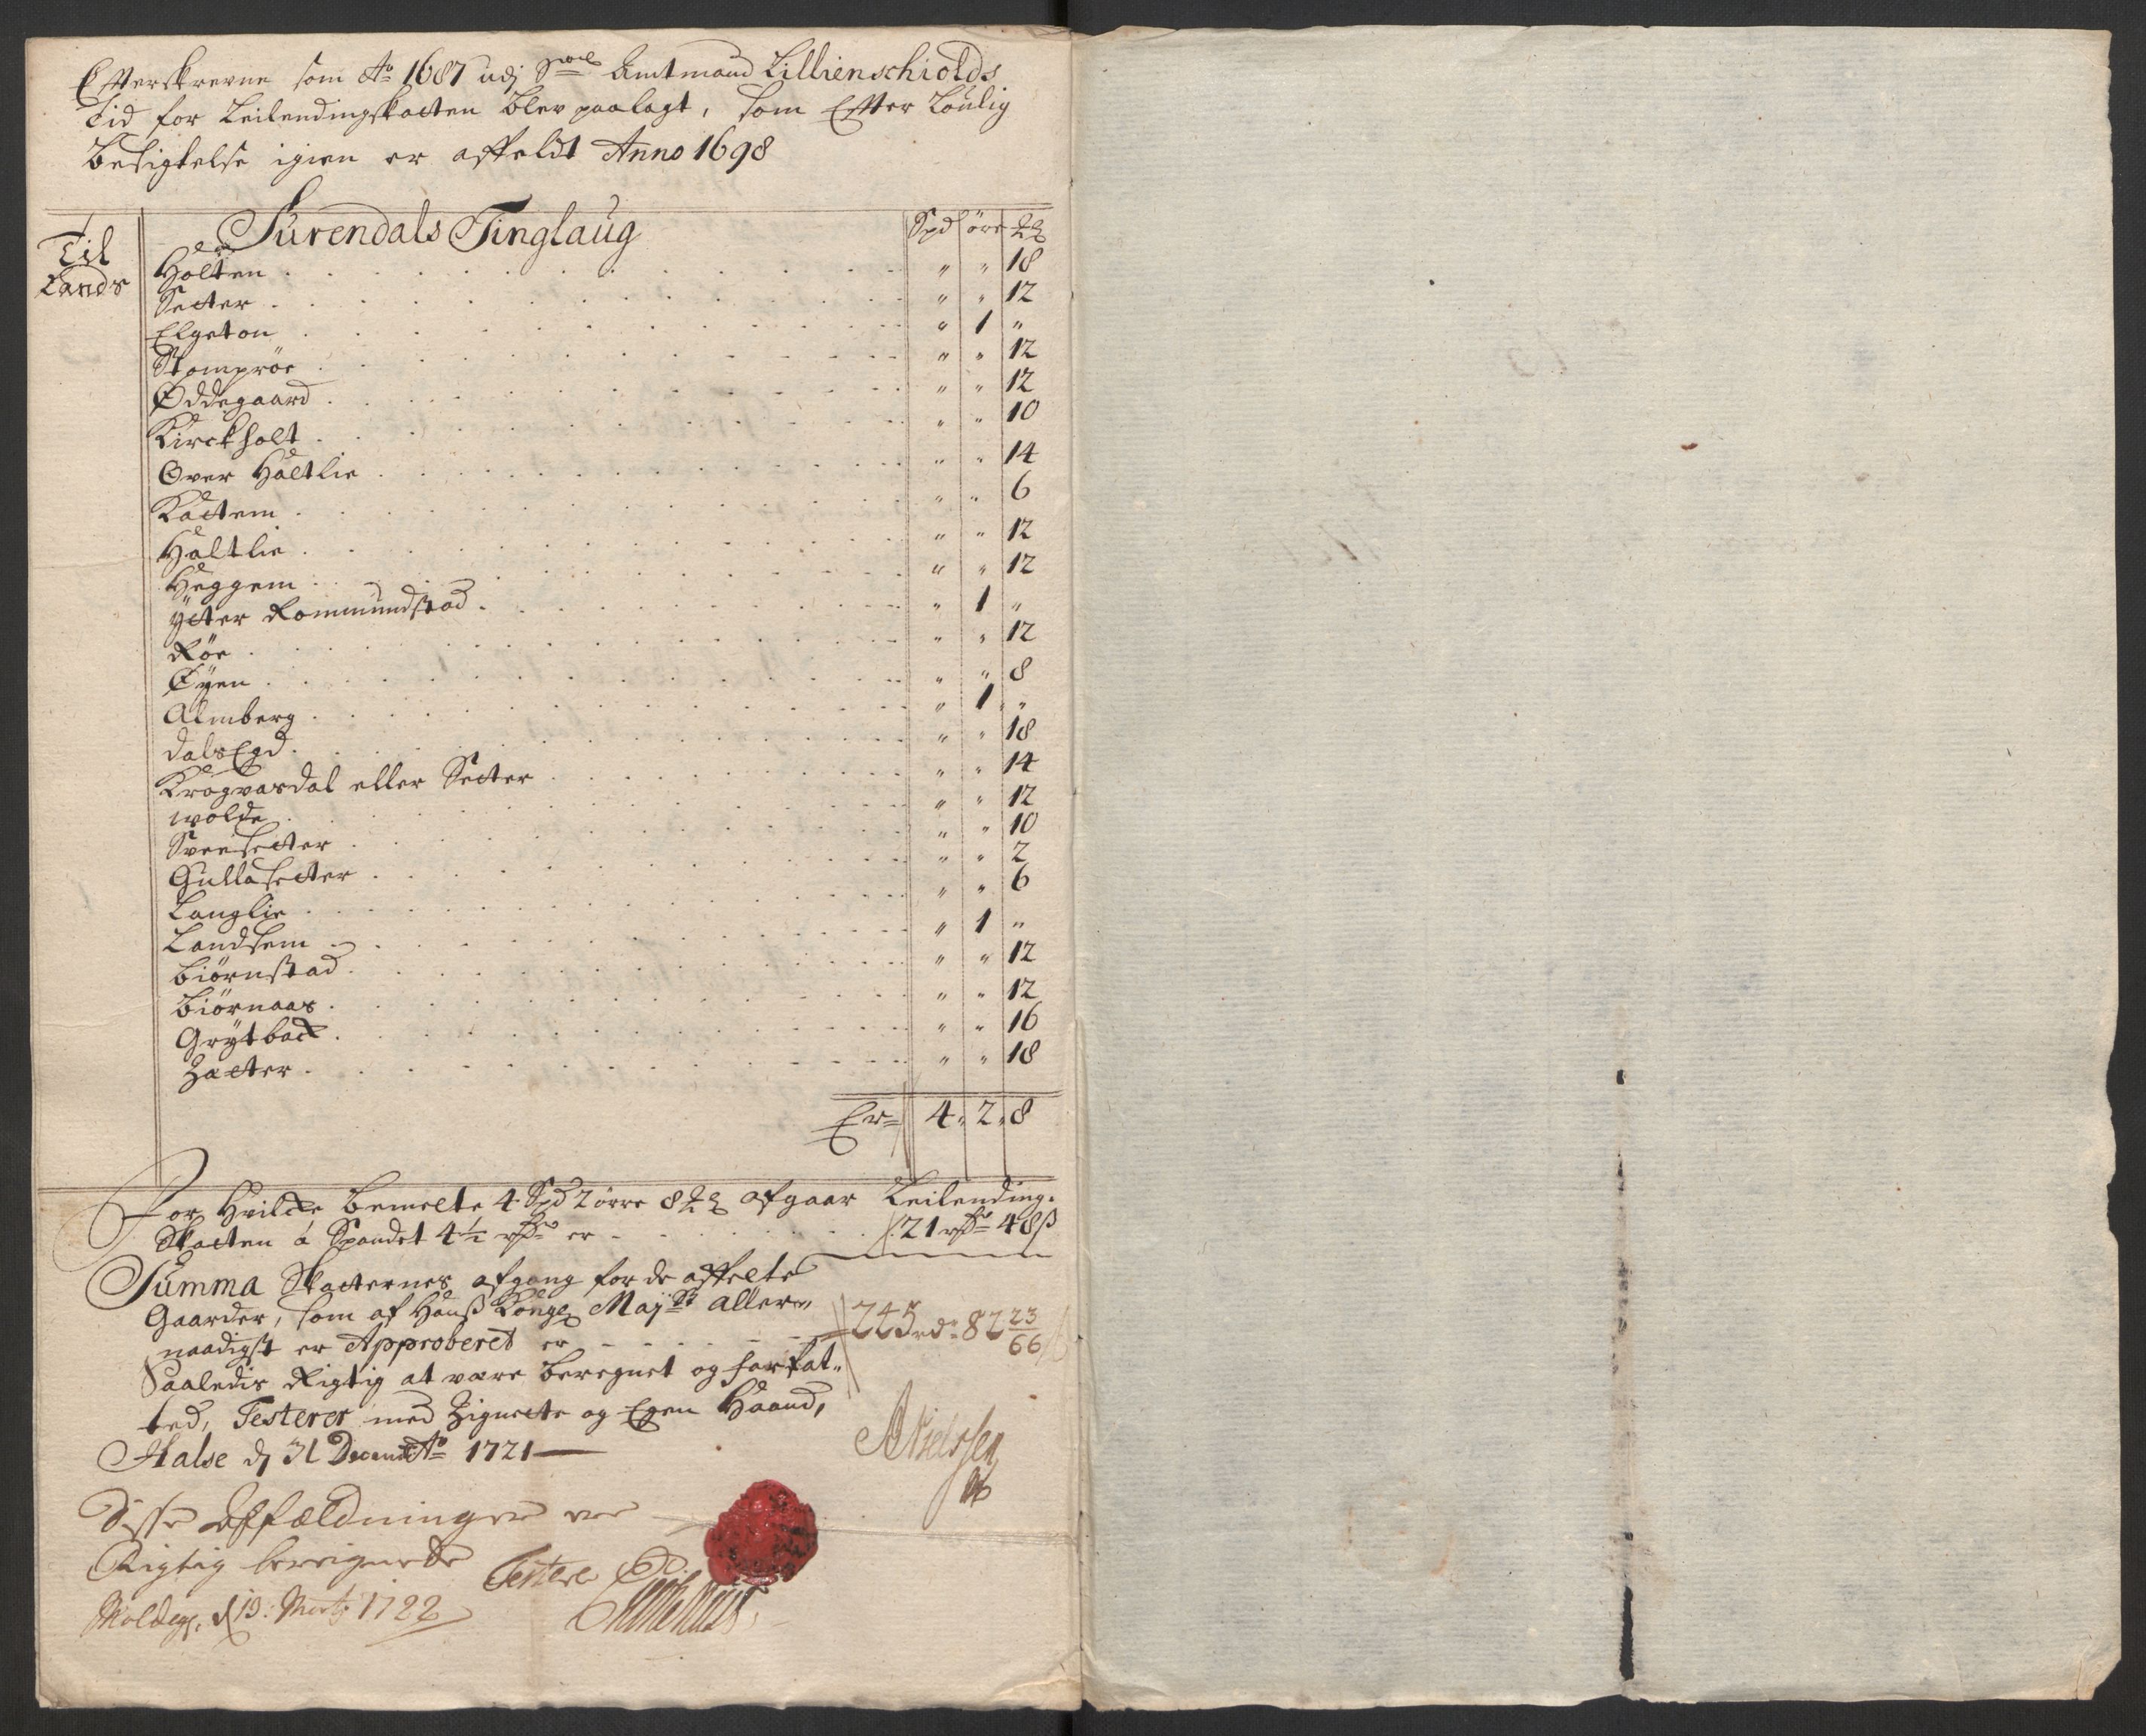 Efterskrevne som Ao 1687 udj Sal Amtmand Lillienschiolds
Tid for Leilendingskatten blev paalagt, som Efter Loulig
besigtelse igien er affeldt Anno 1698
Surendals Tinglaug Spd öre
Til Lands
Holten " " 18
Setter " " 12
Elgeton " 1 "
Skomproe " " 12
Øddegaard " " 12
Kirckholt " " 10
Over Haltlie " " 14
Kattem " " 6
Haltlie " " 12
Heggem " " 12
Ytter Rommundstad " 1 "
Röe " " 12
Øyen " " 8
Almberg " 1 "
dalsEgd " " 18
Krogvasdal eller Setter " " 14
wolde " " 12
Sveesetter " " 10
Gullasetter " " 2
Langlie " " 6
Landsem " 1 "
Biörnstad " " 12
Biörnaas " " 12
Grytback " " 16
Zætter " " 18
Er 4 2 8
For Hvilcke bemelte 4 Spd 2 örre 8 afgaar Leilending-
Skatten á Spandet 4½ rdr er 21 rdr 48 ß
Summa Skatternes afgang for de affelte
Gaarder, som af Hans Kongl Maijst aller-
naadigst er Approberet er 225 rdr 82 23/66 ß
Saaledis Rigtig at være beregnet og forfat-
ted, Testerer med Zignette og Egen Haand,
Halse d 31 Decemb Ao 1721
Nielssen
Disse Affældninger ere
Rigtig beregnede Testerer
Molde d 13 Marti 1722